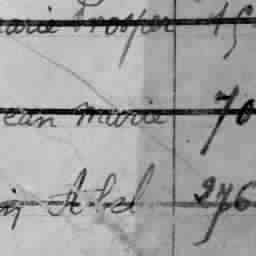 arie Prosper 15
ean Marie 70
in Abel 276